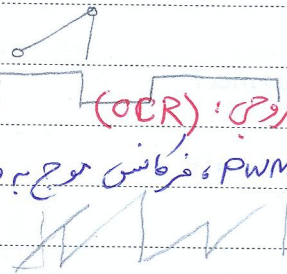 روجی : (OCR)
PWM ، فرکانس موج به